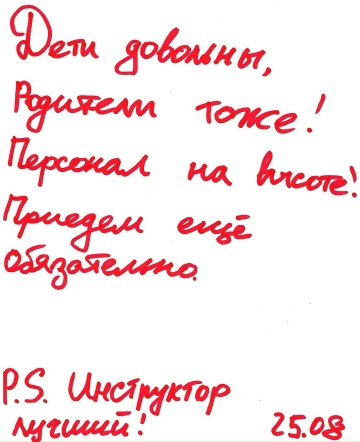 Дети довольны,
Родители тоже!
Персонал на высоте!
Приедем ещё
обязательно.
P.S. Инструктор
лучший! 25.08